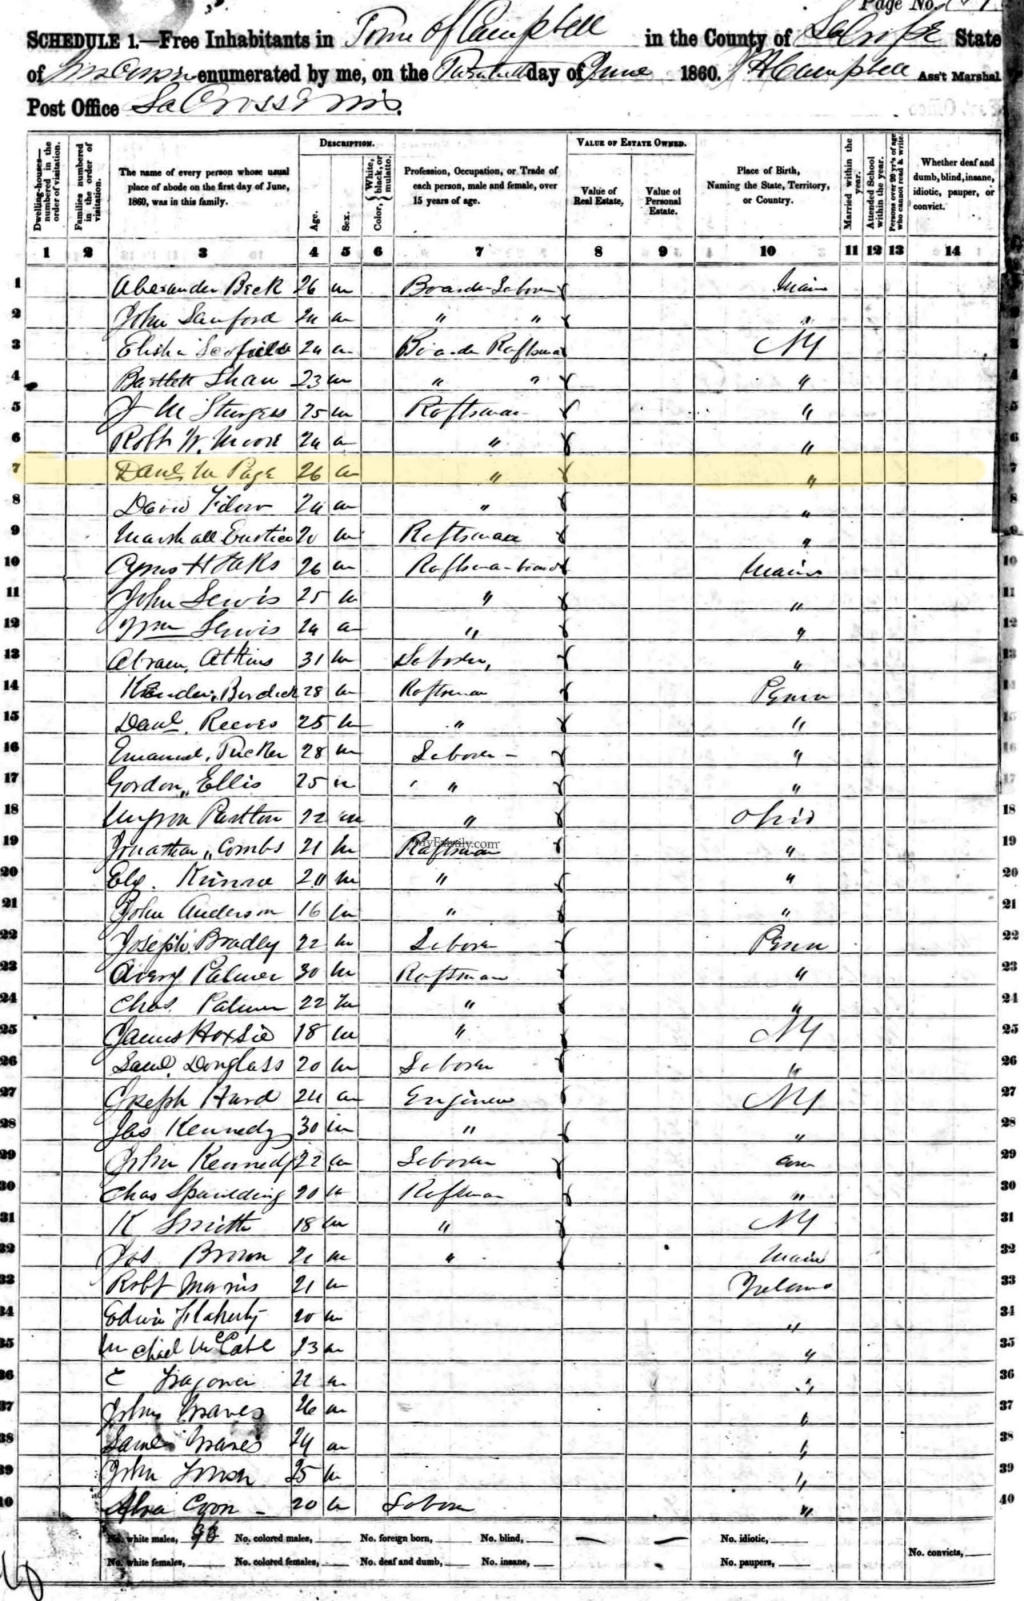 Page No.
SCHEDULE 1.—Free Inhabitants in Town of Campbell in the County of LaCrosse State
of Wisconsin enumerated by me, on the day of June 1860. Campbell Ass't Marshal
Post Office LaCrosse Wis.
DESCRIPTION. VALUE OF ESTATE OWNED.
Dwelling-houses—numbered in the order of visitation. Families numbered in the order of visitation. The name of every person whose usual place of abode on the first day of June, 1860, was in this family. Age. Sex. Color, White, black, or mulatto. Profession, Occupation, or Trade of each person, male and female, over 15 years of age. Value of Real Estate. Value of Personal Estate. Place of Birth, Naming the State, Territory, or Country. Married within the year. Attended School within the year. Persons over 20 y'rs of age who cannot read & write. Whether deaf and dumb, blind, insane, idiotic, pauper, or convict.
1 2 3 4 5 6 7 8 9 10 11 12 13 14
1 Alexander Beck 26 m Boarder Labor Main
2 John Sanford 24 m " " "
3 Elisha Scofield 24 m Boarder Raftsman NY 3
4 Bartlett Shaw 23 m " " " 4
5 J M Sturges 25 m Raftsman " 5
6 Robt W. Moore 24 m " " 6
7 Danl M Page 26 m " " 7
8 David 24 m " " 8
9 Marshall 20 m Raftsman " 9
10 Cyrus H 26 m Raftsman board Main 10
11 John Lewis 25 m " " 11
12 Wm Lewis 24 m " " 12
13 Abram, Atkins 31 m Laborer, " 13
14 Burdick 28 m Raftsman Penn 14
15 Danl. Reeves 25 m " " 15
16 Emanuel, Tucker 28 m Laborer - " 16
17 Gordon,, Ellis 25 m " " " 17
18 Myron 22 m " Ohio 18
19 Jonathan,, Combs 21 m Raftsman " 19
20 24 m " " 20
21 John Anderson 16 m " " 21
22 Joseph Bradly 22 m Laborer Penn 22
23 Avery Palmer 30 m Raftsman " 23
24 Chas. Palmer 22 m " " 24
25 James Hoxsie 18 m " NY 25
26 Saml. Douglass 20 m Laborer " 26
27 Joseph Hurd 24 m Engineer NY 27
28 Jas Kennedy 30 m " " 28
29 John Kennedy 22 m Laborer 29
30 Chas Spaulding 20 m Raftsman " 30
31 K Smith 18 m " NY 31
32 Jos Brown 21 m " Main 32
33 Robt Morris 21 m Ireland 33
34 Edwin Flaherty 20 m " 34
35 Michael McCabe 23 m " 35
36 22 m " 36
37 John Graves 26 m " 37
38 Saml Graves 24 m " 38
39 John 25 m " 39
40 Alva Coon - 20 m Laborer " 40
MyFamily.com
No. white males, No. colored males, No. foreign born, No. blind, No. idiotic,
No. white females, No. colored females, No. deaf and dumb, No. insane, No. paupers, No. convicts,